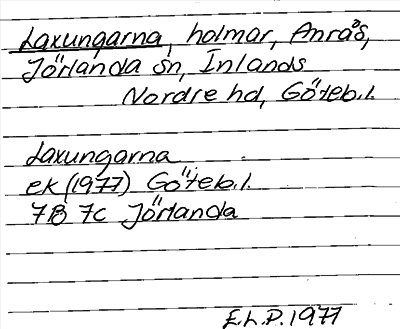 Laxungarna, holmar, Anrås,
Jörlanda sn, Inlands
Nordre hd, Göteb.l.
Laxungarna
ek (1977) Göteb.l.
7B 7c Jörlanda
E.L.P. 1977